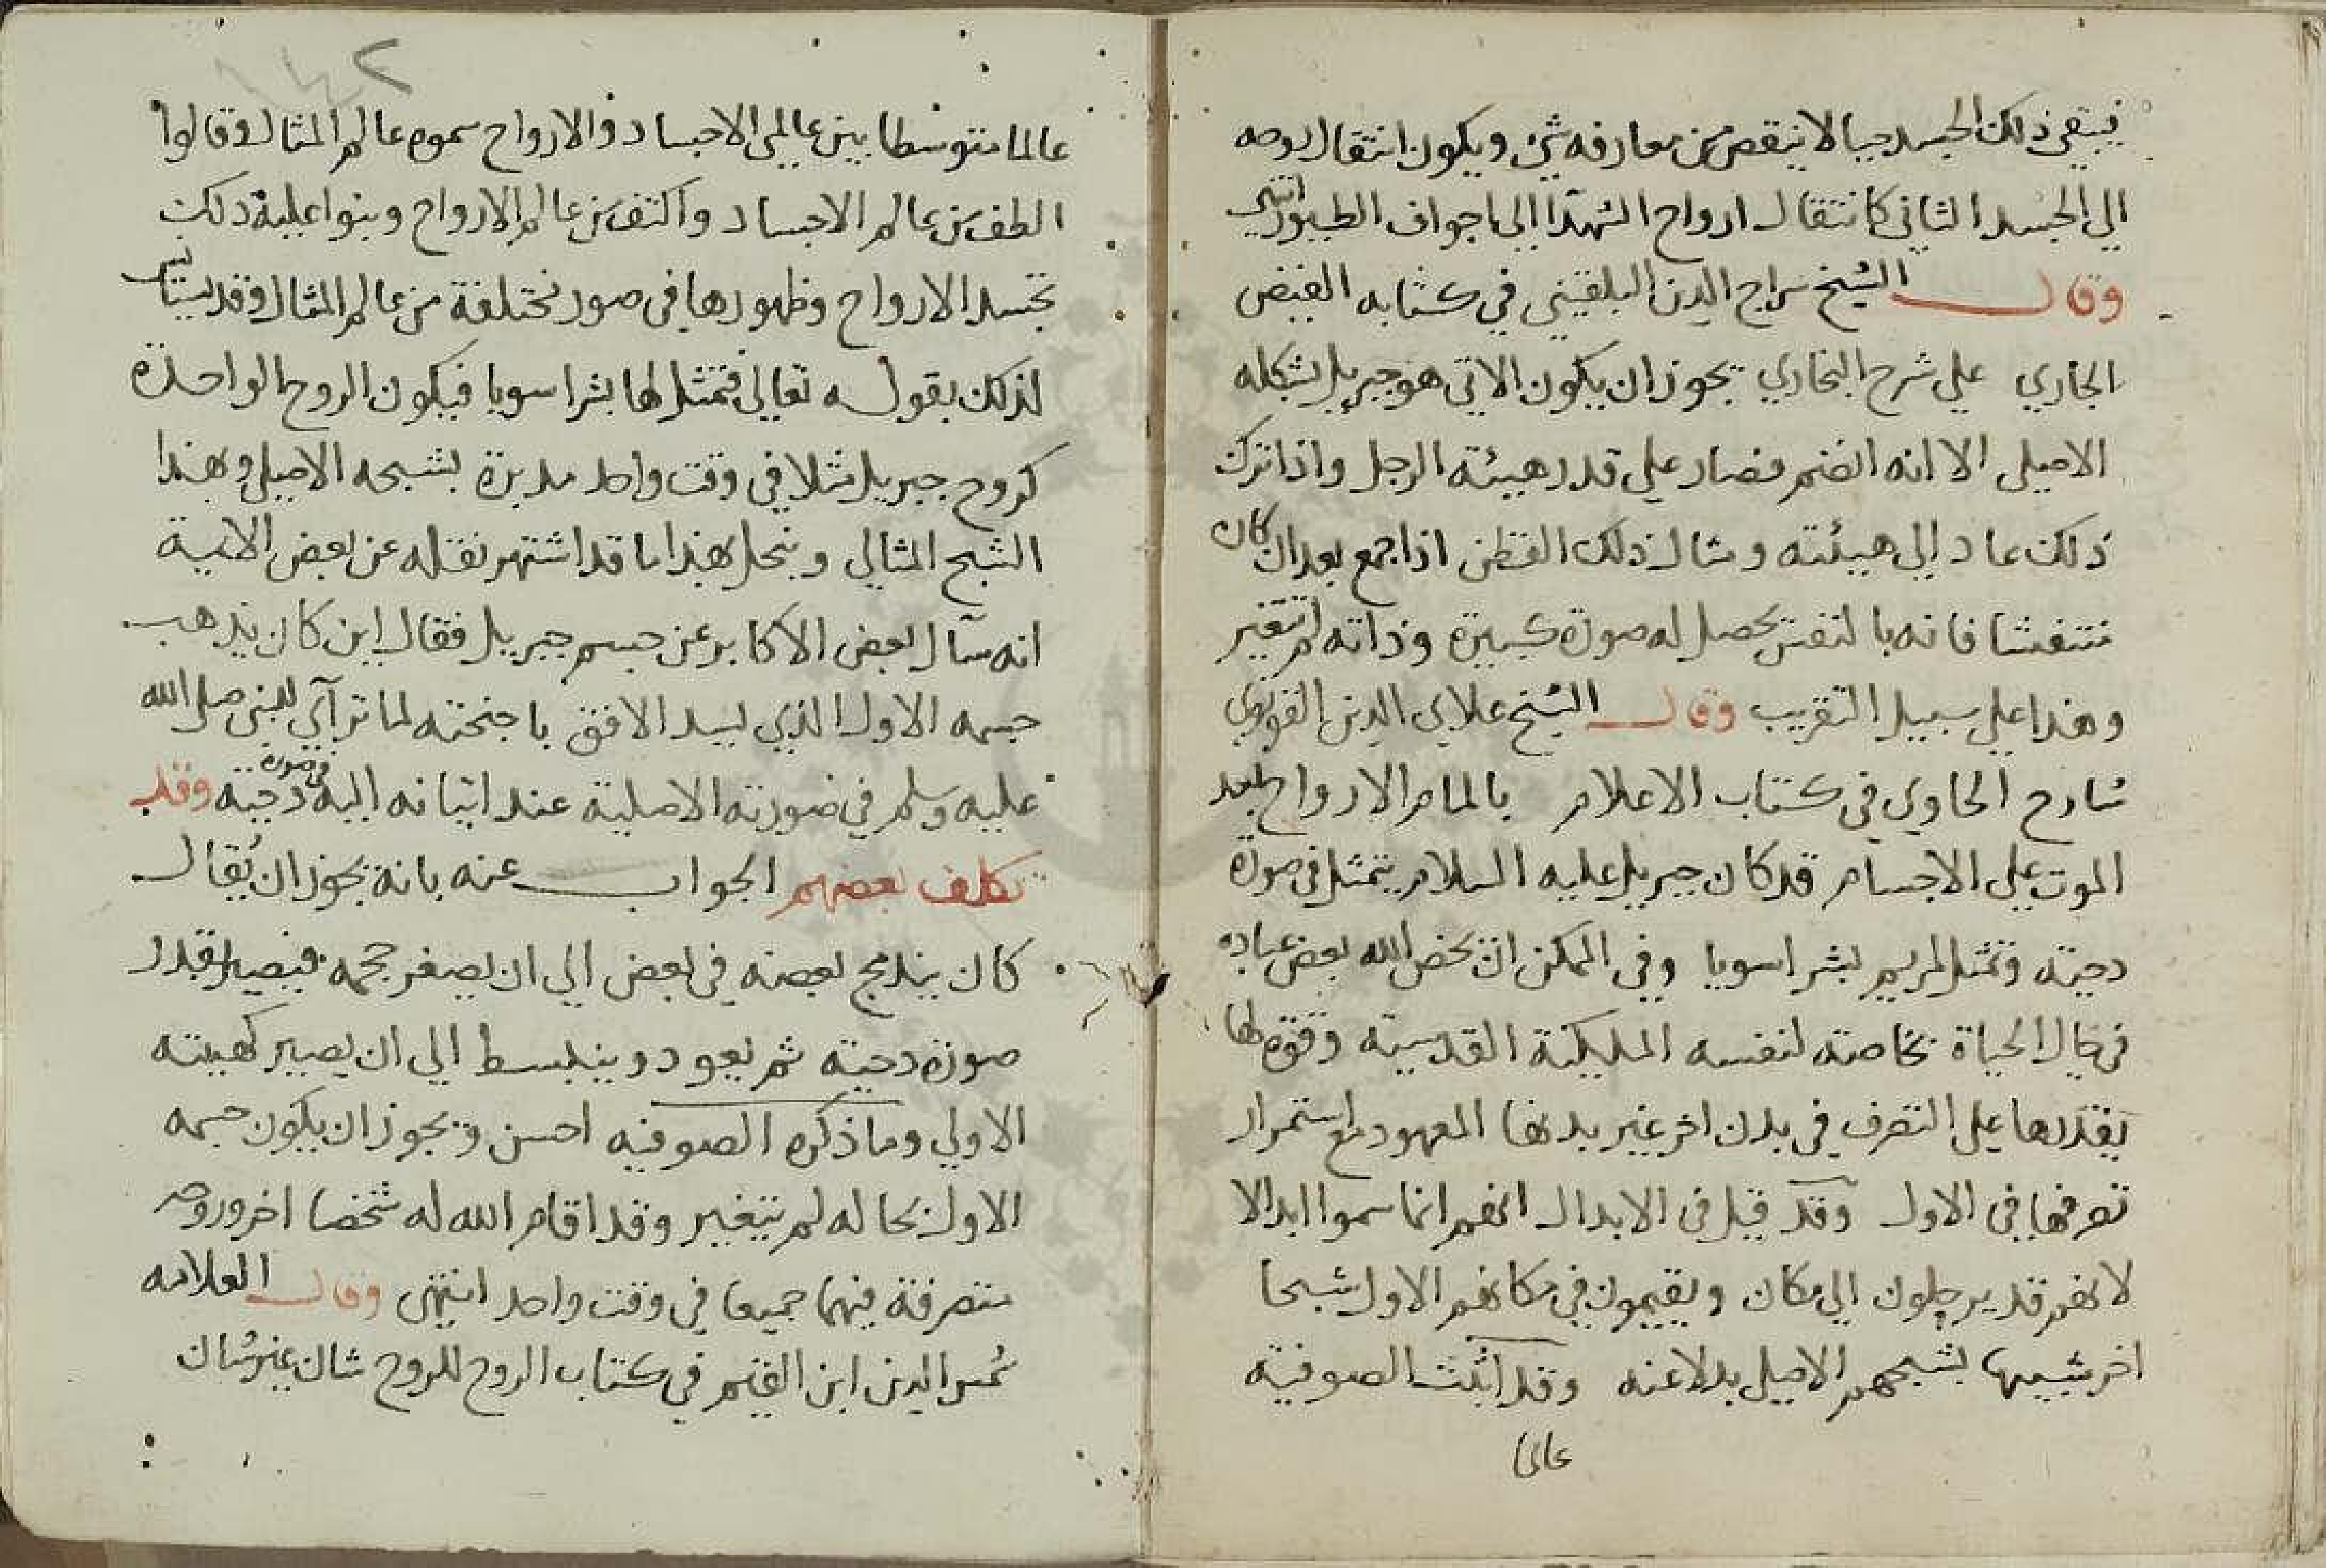 فيبقي ذلك الجسد حيا لا ينقص من معارفه شئ ويكون انتقال روحه
الي الجسد الثاني كانتقال ارواح الشهدا الي اجواف الطيور انتهي
وقال الشيخ سراج الدين البلقيني في كتابه الفيض
الجاري علي شرح البخاري يجوز ان يكون الاتي هو جبريل بشكله
الاصلي الا انه انضم فصار علي قدر هيئة الرجل واذا ترك
ذلك عاد الي هيئته ومثال ذلك القطن اذا جمع بعد ان كان
منتفشا فانه بالنفش يحصل له صورة كبيرة وذاته لم تتغير
وهذا علي سبيل التقريب وقال الشيخ علاي الدين القونوي
شارح الحاوي في كتاب الاعلام بالمام الارواح بعد
الموت علي الاجسام قد كان جبريل عليه السلام يتمثل في صورة
دحية وتمثل لمريم بشرا سويا وفي الممكن ان يخص الله بعض عباده
في حال الحياة بخاصة لنفسه الملكية القدسية وقوة لها
يقدرها علي التصرف في بدن اخر غير بدنها المعهود مع استمرار
تصرفها في الاول وقد قيل في الابدال انهم انما سموا ابدالا
لانهم قد يرحلون الي مكان ويقيمون في مكانهم الاول شبحا
اخر شبيها بشبحهم الاصلي بدلا عنه وقد اثبت الصوفية
عالما
١٤٢
عالما متوسطا بين عالمي الاجساد والارواح سموه عالم المثال وقالوا
الطف من عالم الاجساد واكثف من عالم الارواح وبنوا علي ذلك
تجسد الارواح وظهورها في صور مختلفة من عالم المثال وقد يستانس
لذلك بقوله تعالي فتمثل لها بشرا سويا فيكون الروح الواحدة
كروح جبريل مثلا في وقت واحد مدبرة لشبحه الاصلي وهذا
الشبح المثالي وينحل بهذا ما قد اشتهر نقله عن بعض الايمة
انه سأل بعض الاكابر عن جسم جبريل فقال اين كان يذهب
جسمه الاول الذي يسد الافق باجنحته لما ترآي للنبي صلي الله
عليه وسلم في صورته الاصلية عند اتيانه اليه في صورة دحية وقد
تكلف بعضهم الجواب عنه بانه يجوز ان يُقال
كان يندمج بعضه في بعض الي ان يصغر حجمه فيصير بقدر
صورة دحية ثم يعود وينبسط الي ان يصير كهيئته
الاولي وما ذكره الصوفيه احسن ويجوز ان يكون جسمه
الاول بحاله لم يتغير وقد اقام الله له شخصا اخر وروحه
متصرفة فيهما جميعا في وقت واحد انتهى وقال العلامه
شمس الدين ابن القيم في كتاب الروح للروح شان غير شان